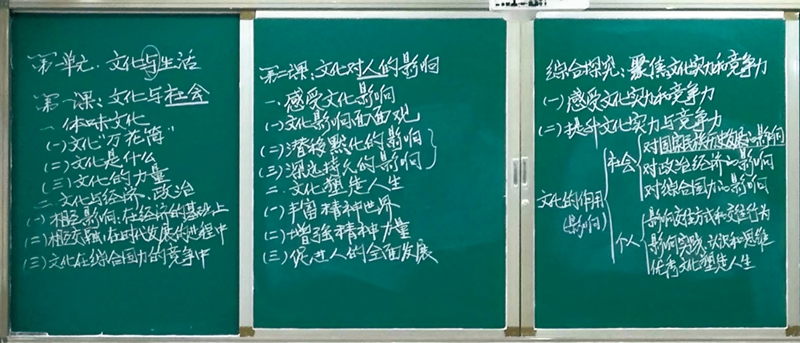 第一单元：文化与生活
第一课：文化与社会
一、体味文化
(一)文化"万花筒"
(二)文化是什么
(三)文化的力量
二、文化与经济、政治
(一)相互影响，在经济的基础上
(二)相互交融，在时代发展的进程中
(三)文化在综合国力的竞争中
第二课：文化对人的影响
一、感受文化影响
(一)文化影响面面观
(二)潜移默化的影响
(三)深远持久的影响
二、文化塑造人生
(一)丰富精神世界
(二)增强精神力量
(三)促进人的全面发展
综合探究：聚焦文化实力和竞争力
(一)感受文化实力和竞争力
(二)提升文化实力与竞争力
文化的作用
(影响)
社会
对国家民族历史发展的影响
对政治经济的影响
对综合国力的影响
个人
影响交往方式和交往行为
影响实践、认识和思维
优秀文化塑造人生